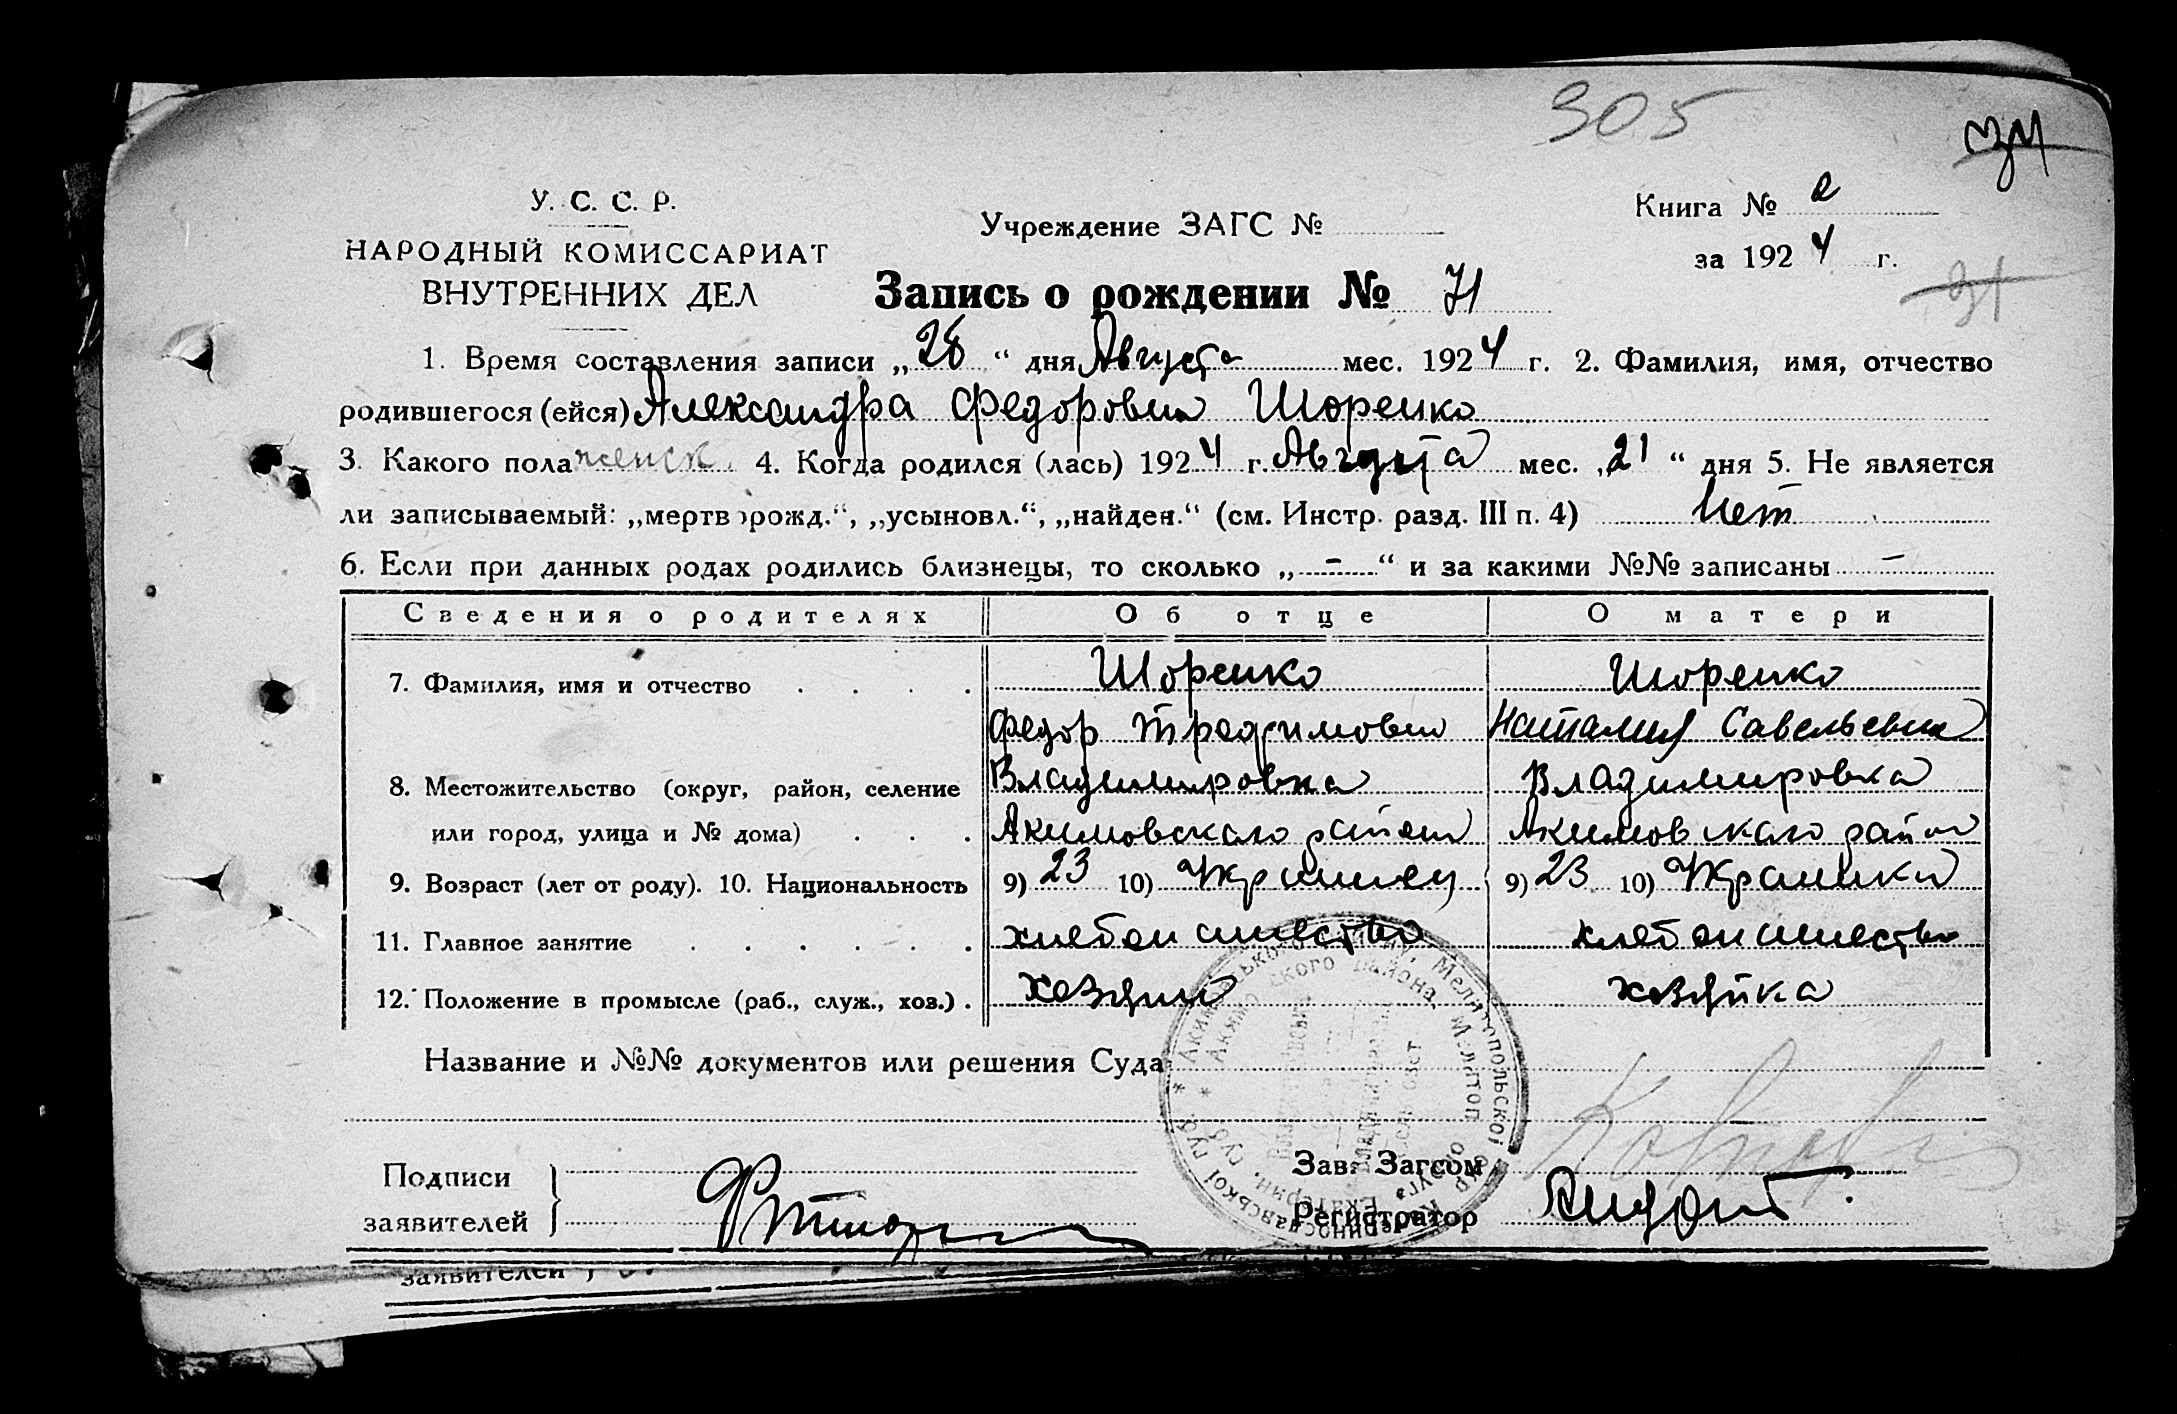 305
У. С. С. Р.
НАРОДНЫЙ КОМИССАРИАТ
ВНУТРЕННИХ ДЕЛ
Учреждение ЗАГС №
Книга № 2
за 1924 г.
31
Запись о рождении № 71
1. Время составления записи „28“ дня Августа мес. 1924 г. 2. Фамилия, имя, отчество
родившегося (ейся) Александра Федоровна Шоренко
3. Какого пола женск. 4. Когда родился (лась) 1924 г. Августа мес. „21“ дня 5. Не является
ли записываемый: „мертворожд.“, „усыновл.“, „найден.“ (см. Инстр. разд. III п. 4) Нет
6. Если при данных родах родились близнецы, то сколько „-“ и за какими №№ записаны -
Сведения о родителях Об отце О матери
7. Фамилия, имя и отчество . . . . Шоренко Шоренко
Федор Трафимович Наталия Савельевна
8. Местожительство (округ, район, селение Владимировка Владимировка
или город, улица и № дома) . . . Акимовского района Акимовского район
9. Возраст (лет от роду). 10. Национальность 9) 23 10) Украинец 9) 23 10) Украинка
11. Главное занятие . . . . . . хлебопашество хлебопашество
12. Положение в промысле (раб., служ., хоз.) . хозяин хозяйка
Название и №№ документов или решения Суда
Подписи
заявителей
Зав. Загсом
Регистратор
заявителей